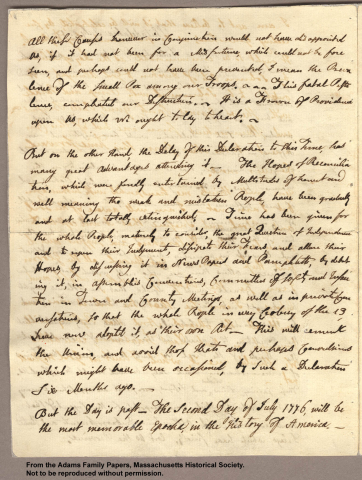 All these Causes however in Conjunction would not have disappointed
Us, if it had not been for a Misfortune, which could not be fore
seen, and perhaps could not have been prevented, I mean the Preva
lence of the small Pox among our Troops. . . . This fatal Pesti
lence, compleated our Destruction. It is a Frown of Providence
upon Us, which We ought to lay to heart.
But on the other Hand, the Delay of this Declaration to this Time, has
many great Advantages attending it. The Hopes of Reconcilia
tion, which were fondly entertained by Multitudes of honest and
well meaning tho weak and mistaken People, have been gradually
and at last totally extinguished. Time has been given for
the whole People, maturely to consider the great Question of Independence
and to ripen their Judgments, dissipate their Fears, and allure their
Hopes, by discussing it in News Papers and Pamphletts, by debat
ing it, in Assemblies, Conventions, Committees of Safety and Inspec
tion, in Town and County Meetings, as well as in private Con
versations, so that the whole People in every Colony of the 13,
have now adopted it, as their own Act. This will cement
the Union, and avoid those Heats and perhaps Convulsions
which might have been occasioned, by such a Declaration
Six Months ago.
But the Day is past. The Second Day of July 1776, will be
the most memorable Epocha, in the History of America.
From the Adams Family Papers, Massachusetts Historical Society.
Not to be reproduced without permission.